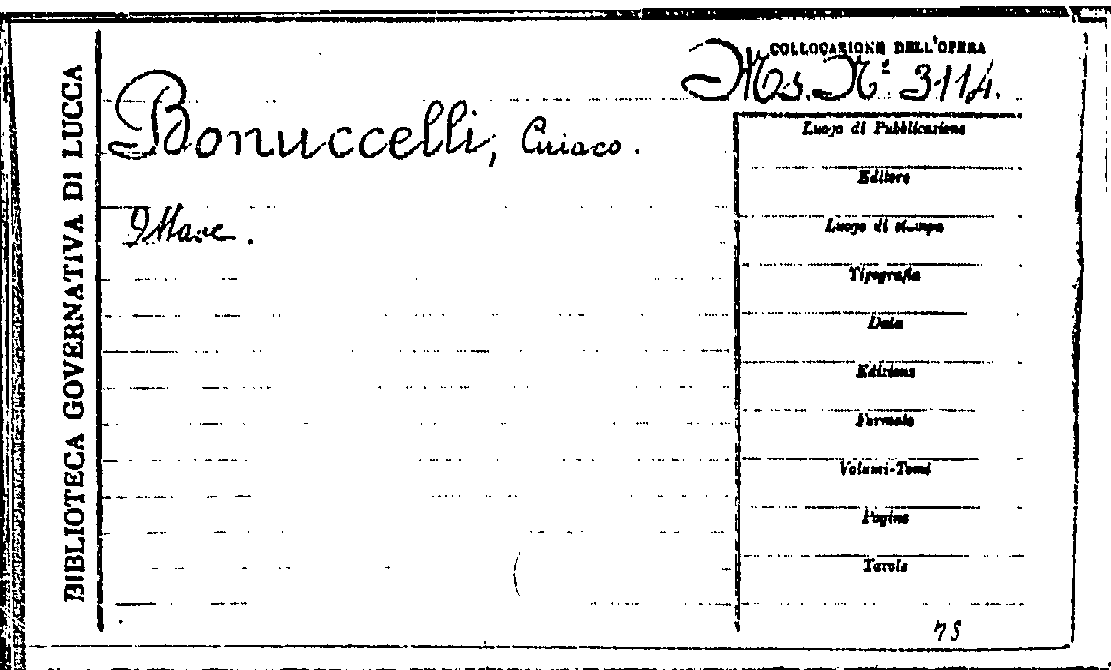 BIBLIOTECA GOVERNATIVA DI LUCCA
COLLOCAZIONE DELL'OPERA
Ms. N.° 3114.
Bonuccelli, Ciriaco.
Luogo di Pubblicazione
Editore
Luogo di stampa
Tipografia
Data
Edizione
Formato
Volumi-Tomi
Pagine
Tavole
75